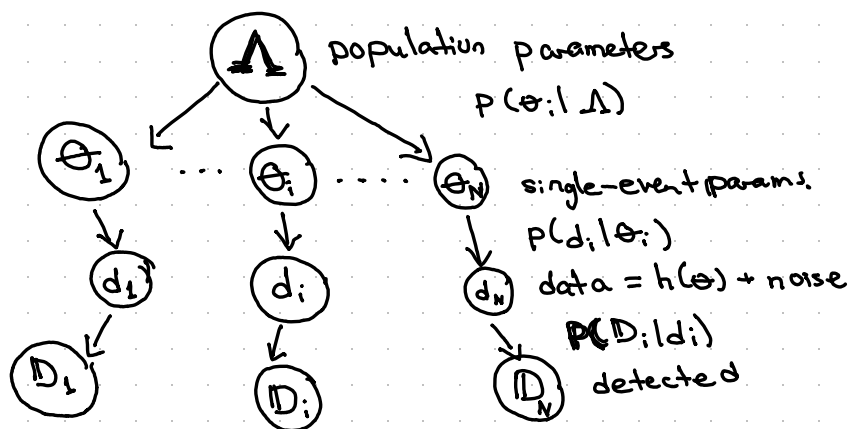 Λ population parameters
p(θi|Λ)
θ1 .... θi ..... θN single-event params.
p(di|θi)
d1 di dN data = h(θ) + noise
P(𝔻i|di)
𝔻1 𝔻i 𝔻N detected